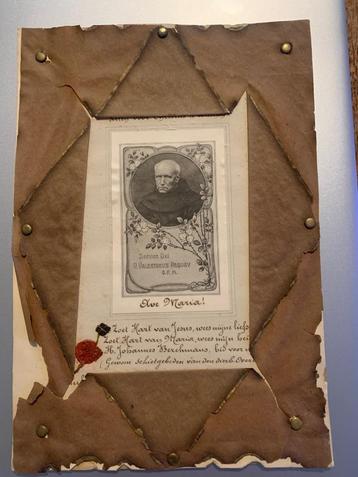 Servus Dei
P. Valentinus Paquay
o.f.m.
Ave Maria!
Zoet Hart van Jesus, wees mijne liefd
Zoet Hart van Maria, wees mijn hei
H. Johannes Berchmans, bid voor
Gewone schietgebeden van den